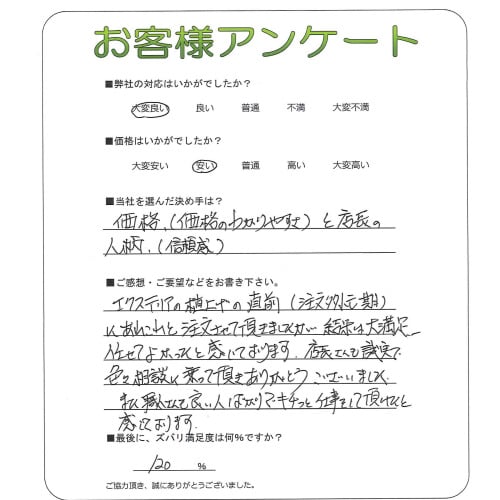 お客様アンケート
■弊社の対応はいかがでしたか？
大変良い 良い 普通 不満 大変不満
■価格はいかがでしたか？
大変安い 安い 普通 高い 大変高い
■当社を選んだ決め手は？
価格、（価格のわかりやすさ）と店長の
人柄、（信頼感）
■ご感想・ご要望などをお書き下さい。
エクステリアの 直前（注文
注文させて頂きましたが 結果は大満足
任せてよかったと感じております。店長さんも誠実で
色々相談に乗って頂きありがとうございました。
職人さんも良い人ばかりでキチッと仕事をして頂けたと
感じております。
■最後に、ズバリ満足度は何％ですか？
120 ％
ご協力頂き、誠にありがとうございました。